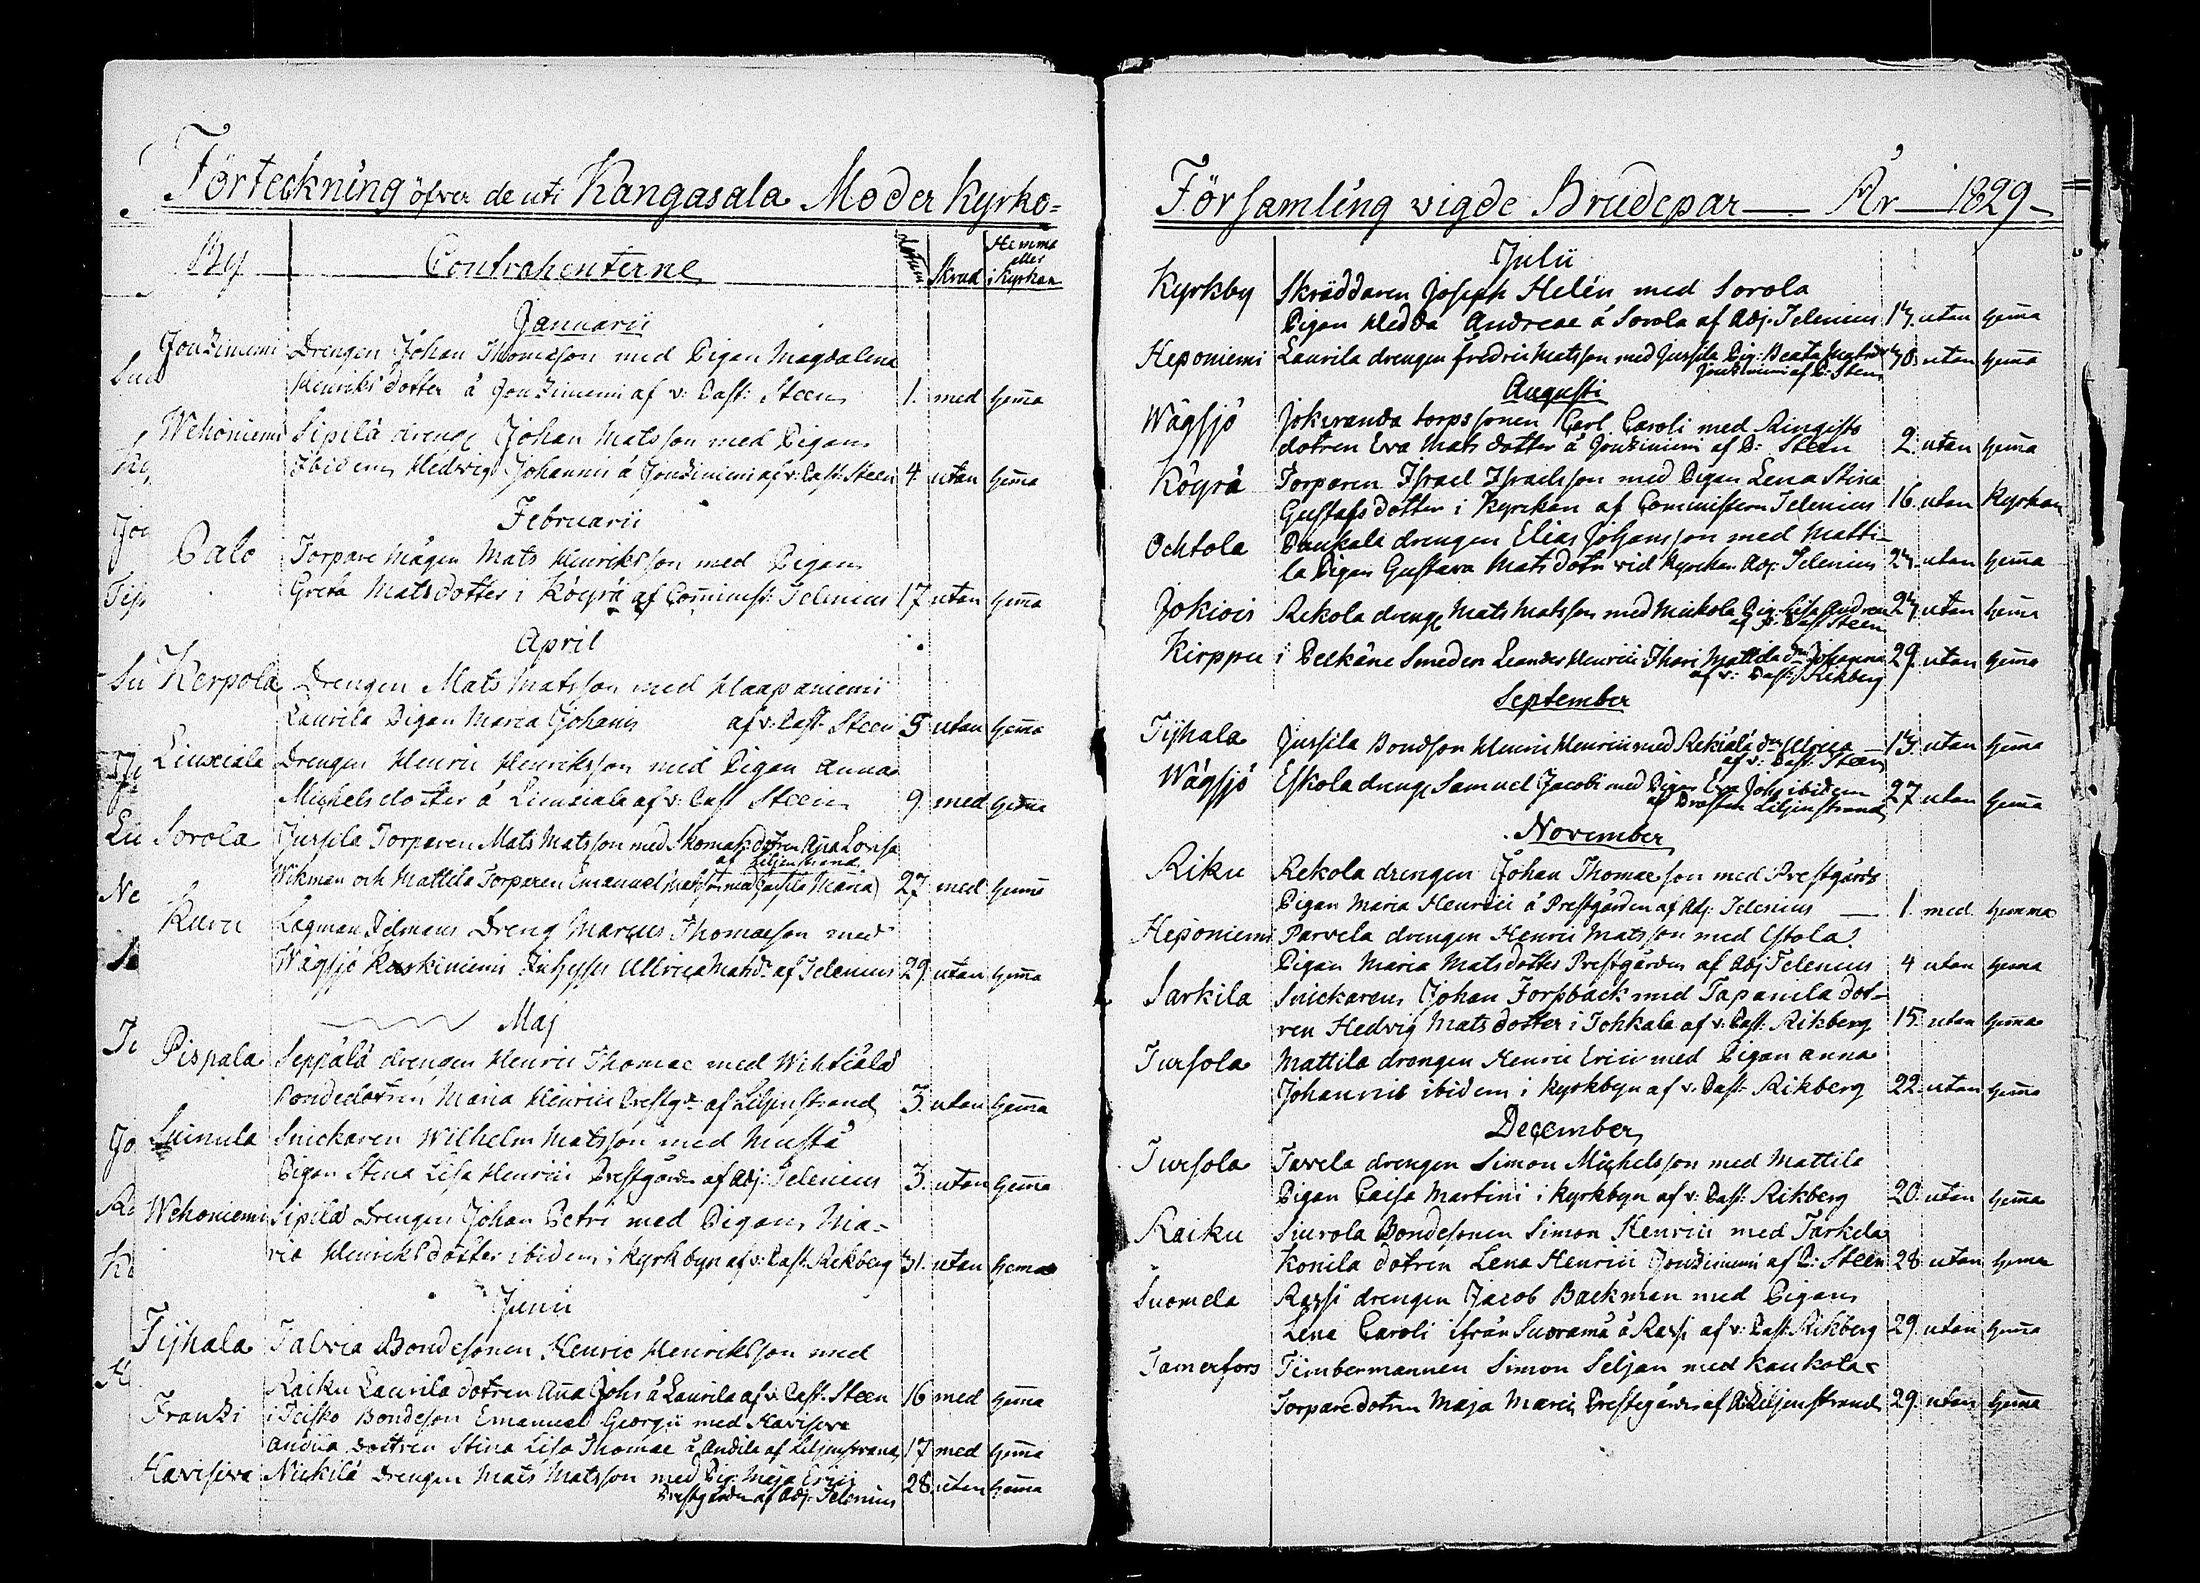 Förteckning öfver de uti Kangasala Moder Kyrko=
By Contrahenterne Datum Skrud Hemma eller i Kyrkan
Januarii
Jouzimemi Drengen Johan Thomasson med Pigan Magdalena
Henriks dotter å Jouzimemi af v: Past: Steen 1. med hem̄a
Wehoniemi Sipilä drenge Johan Matsson med Pigan
Ibidem Hedwig Johannis å Jouzimemi af v: Past: Steen 4. utan hem̄a
Februarii
Palo Torpare Mågen Mats Henriksson med Pigan
Greta Matsdotter i Köyrä af Com̄inist: Telenius 17 utan hem̄a
April
Kerpola Drengen Mats Matsson med Haapaniemi
Laurila Pigan Maria Johanis af v: Past: Steen 5 utan hem̄a
Liuxiala Drengen Henric Henriksson med Pigan Anna
Michelsdotter å Liuxiala af v: Past Steen 9. med hem̄a
Sorola Jussila Torparen Mats Matsson med Skomak: dotren Aña Lovisa
af Liljenstrand
Wikman och Mattila Torparen Emanuel Matsson med Jussila Maria 27 med hem̄a
Kuru Lagman Dreng Marcus Thomasson med
Wägsjö Koskiniemi Ullrica Matsdr af Telenius 29. utan hem̄a
Maj
Pispala Seppälä drengen Henric Thomae med Wihtiälä
Bondedotren Maria Henrici Prestgn af Liljenstrand 3. utan hem̄a
Luinula Snickaren Wilhelm Matsson med Mustä
Pigan Stina Lisa Henrici Prestgården af Adj: Telenius 3. utan hem̄a
Wehoniemi Sipilä Drengen Johan Petri med Pigan Ma-
ria Henriksdotter ibidem i Kyrkbyn af v: Past: Rikberg 31. utan hema
Junii
Tijhala Talvia Bondesonen Henric Henriksson med
Raiku Laurila dotren Aña Johs å Laurila af v: Past: Steen 16 med hem̄a
Franzi i Teisko Bondeson Emanuel Georgii med Havisova
Andila dottren Stina Lisa Thomae å Andila af Liljenstrand 17 med hem̄a
Havisova Nickilä Drengen Mats Matsson med Pig: Maja Erici
Prestgården af Adj: Telenius 28. utan hem̄a
Församling vigde Brudepar — År — 1829 —
Julii
Kyrkby Skräddaren Joseph Helén med Sorola
Pigan Hedda Andreae å Sorola af Adj. Telenius 13. utan hem̄a
Heponiemi Laurila drengen Fredric Matsson med Jussila Pig: Beata Matsdr 30. utan hem̄a
Jouzimemi af P: Steen
Augusti
Wägsjö Jokeranda torpssonen Carl Caroli med Ringisto
dotren Eva Mats dotter å Jouzimemi af P: Steen 2. utan hem̄a
Köyrä Torparen Israel Israelsson med Pigan Lena Stina
Gustafsdotter i Kyrckan af Comministern Telenius 16. utan Kyrkan
Ochtola Paukala drengen Elias Johansson med Matti-
la Pigan Gustava Mats dotr vid Kyrckan Adj: Telenius 23. utan hem̄a
Jokiois Rekola drenge Mats Matsson med Mickola Pig: Lisa Andreae 23. utan hem̄a
af v: Past Steen
Kirppu i Pelkäne Smeden Leander Henrici Ihari Mattila dn Johanna 29. utan hem̄a
af v: Past: Rikberg
September
Tijhala Jussila Bondson Henric Henrici med Rekiälä dn Ulrica — 13. utan hem̄a
af v: Past: Steen
Wägsjö Eskola drenge Samuel Jacobi med Pigan Eva Joh: ibidem 27 utan hem̄a
af Prosten Liljenstrand
November
Riku Rekola drengen Johan Thomaeson med Prestgårds
Pigan Maria Henrici å Prestgården af Adj. Telenius — 1. med. hemma
Heponiemi Parvela drengen Henric Matsson med Estola
Pigan Maria Matsdotter Prestgården af Adj Telenius 4 utan hema
Sarkila Snickaren Johan Forsbäck med Tapanila dot-
ren Hedvig Matsdotter i Tohkala af v: Past: Rikberg 15. utan hem̄a
Tursola Mattila drengen Henric Erici med Pigan Anna
Johannis ibidem i Kyrkbyn af v: Past: Rikberg 22. utan hem̄a
December
Tursola Tavela drengen Simon Michelsson med Mattila
Pigan Caisa Martini i Kyrkbyn af v: Past: Rikberg 20. utan hem̄a
Raiku Siurola Bondesonen Simon Henrici med Tarkela
Konila dotren Lena Henrici Jouzimemi af P: Steen 28 utan hema
Suomela Rassi drengen Jacob Backman med Pigan
Lena Caroli ifrån Suoramå å Rassi af v: Past: Rikberg 29. utan hem̄a
Tamerfors Timbermannen Simon Seljan med Kaukola
Torparedotren Maja Marci Prestegården af Liljenstrand 29. utan hem̄a